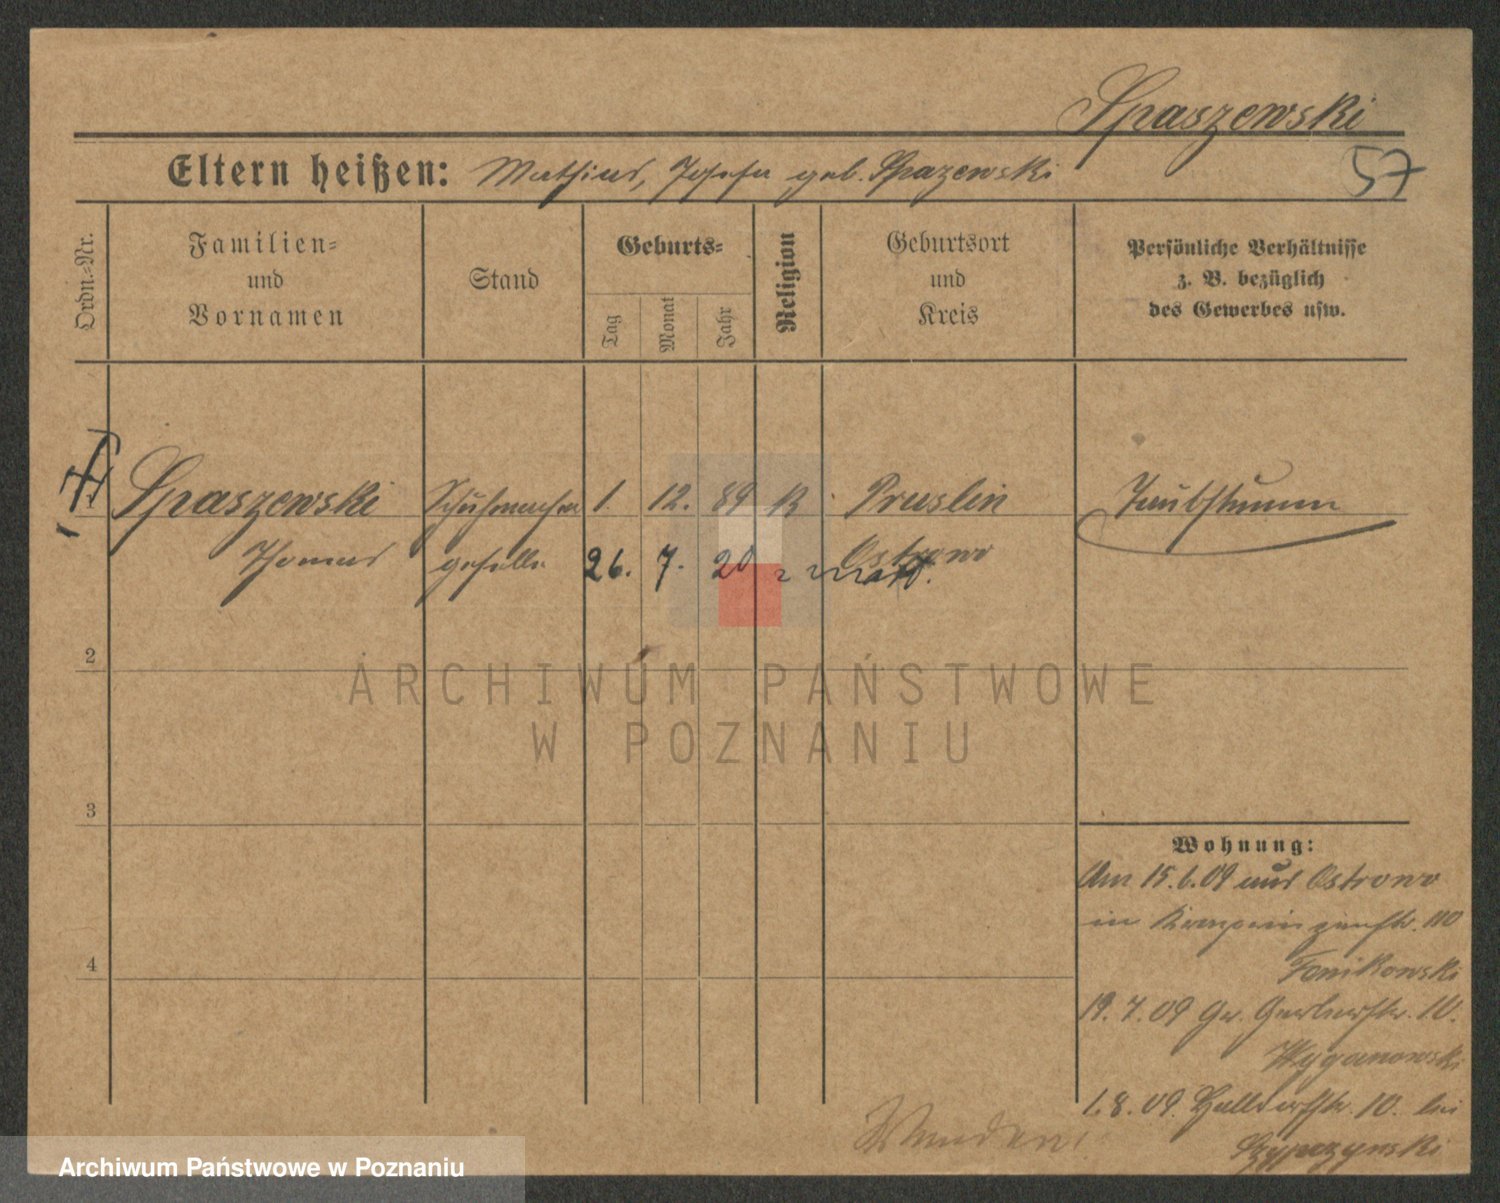 Spaszewski
57
Eltern heißen: Mathias, Josefa geb. Spazewski
Ordn.-Nr.
Familien-
und
Vornamen
Stand
Geburts-
Tag
Monat
Jahr
Religion
Geburtsort
und
Kreis
Persönliche Verhältnisse
z. B. bezüglich
des Gewerbes usw.
Spaszewski Schuhmacher 1. 12. 89 K Pruslin Taubstumm
Thomas geselle Ostrowo
26. 7. 20
2
3
4
ARCHIWUM PAŃSTWOWE
W POZNANIU
Wohnung:
Am 15.6.09 aus Ostrowo
in
Fenikowski
19. 7. 09 Gr. Gerberstr. 10.
Wyganowski
1.8.09. Halldorfstr. 10. bei
Szypczynski
Wenden!
Archiwum Państwowe w Poznaniu